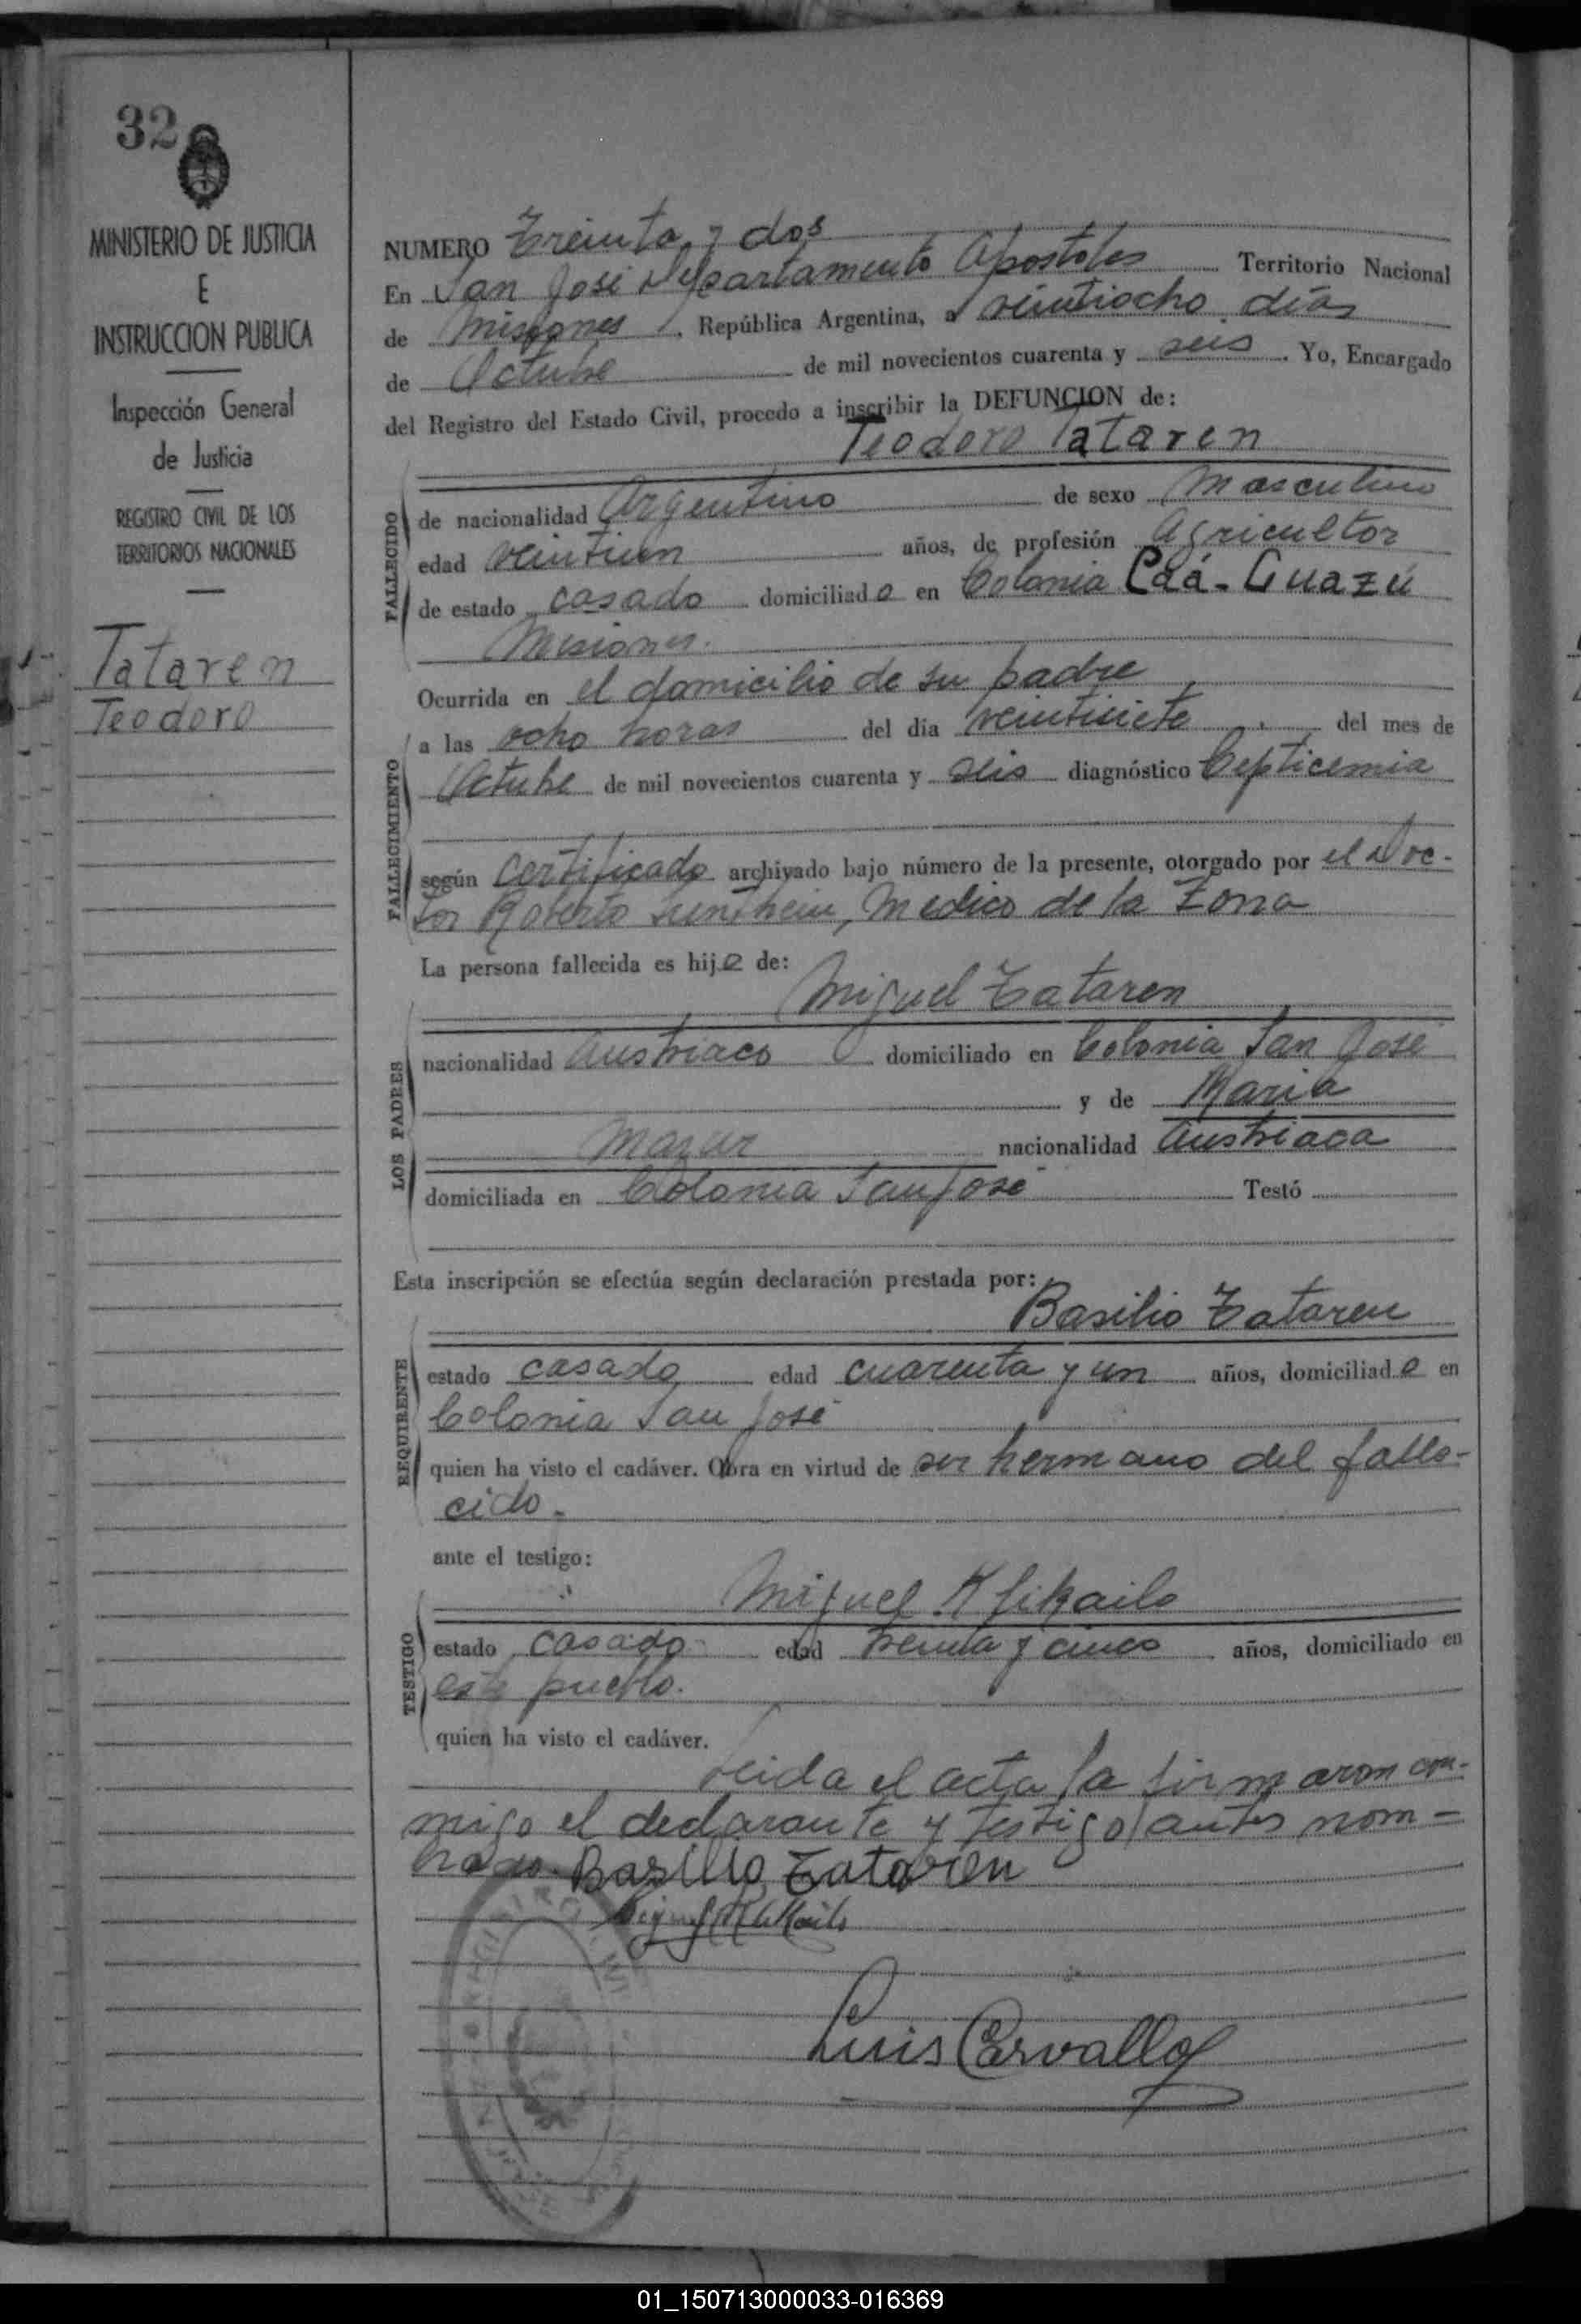 32
MINISTERIO DE JUSTICIA
E
INSTRUCCION PUBLICA
Inspección General
de Justicia
REGISTRO CIVIL DE LOS
TERRITORIOS NACIONALES
Tataren
Teodoro
NUMERO Treinta y dos
En San José Departamento Apostoles Territorio Nacional
de Misiones, República Argentina, a veintiocho días
de Octubre de mil novecientos cuarenta y seis. Yo, Encargado
del Registro del Estado Civil, procedo a inscribir la DEFUNCION de:
Teodoro Tataren
FALLECIDO
de nacionalidad Argentino de sexo Masculino
edad veintiun años, de profesión Agricultor
de estado casado domiciliado en Colonia Caá-Guazú
Misiones.
FALLECIMIENTO
Ocurrida en el domicilio de su padre
a las ocho horas del día veintisiete del mes de
Octubre de mil novecientos cuarenta y seis diagnóstico Cepticemia
según Certificado archivado bajo número de la presente, otorgado por el Doc-
tor Roberto, Medico de la Zona
La persona fallecida es hijo de:
Miguel Tataren
LOS PADRES
nacionalidad Austriaco domiciliado en Colonia San José
y de Maria
Mazur nacionalidad Austriaca
domiciliada en Colonia San José Testó
Esta inscripción se efectúa según declaración prestada por:
Basilio Tataren
REQUIRENTE
estado casado edad cuarenta y un años, domiciliado en
Colonia San José
quien ha visto el cadáver. Obra en virtud de ser hermano del falle-
cido.
ante el testigo:
Miguel
TESTIGO
estado casado edad treinta y cinco años, domiciliado en
este pueblo.
quien ha visto el cadáver.
Leida el acta la firmaron con-
migo el declarante y testigo antes nom-
brado. Basilio Tataren
Luis Carvallo
01_150713000033-016369